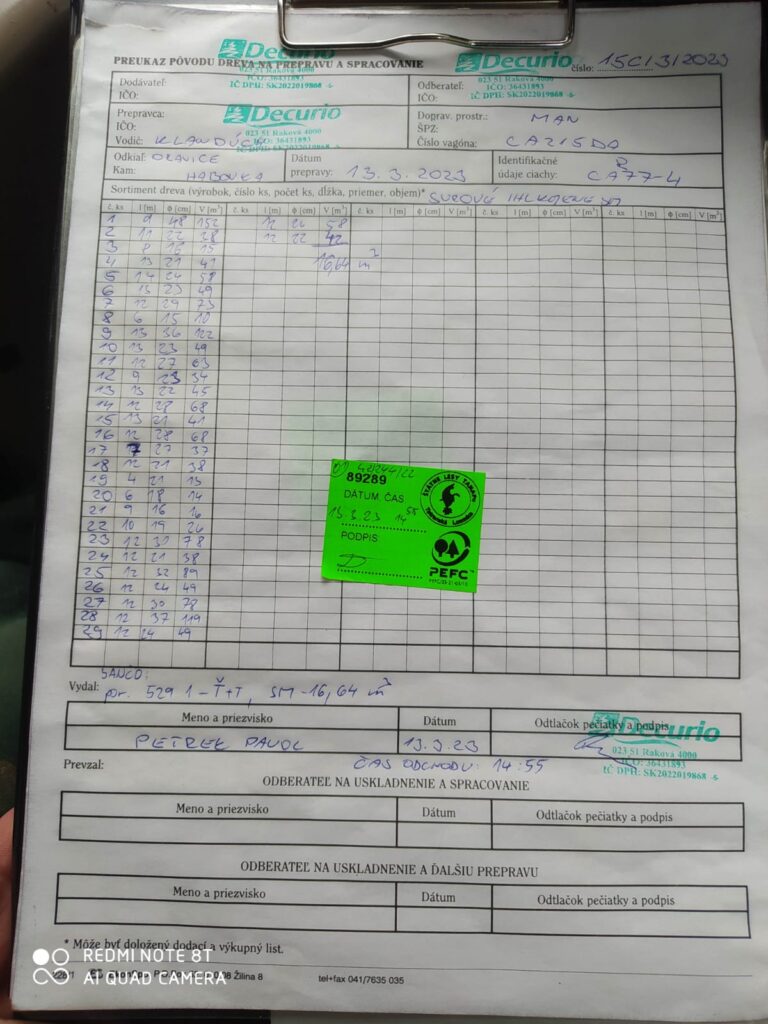 Decurio
Decurio
PREUKAZ PÔVODU DREVA NA PREPRAVU A SPRACOVANIE
číslo: 15C/3/2023
023 51 Raková 4000
IČO: 36431893
IČ DPH: SK2022019868
023 51 Raková 4000
IČO: 36431893
IČ DPH: SK2022019868
Dodávateľ:
IČO:
Odberateľ:
IČO:
Decurio
023 51 Raková 4000
IČO: 36431893
IČ DPH: SK2022019868
Prepravca:
IČO:
Vodič:
Doprav. prostr.: MAN
ŠPZ:
Číslo vagóna: CA215DD
Odkiaľ: ORAVICE
Kam: HABOVKA
Dátum prepravy: 13.3.2023
Identifikačné údaje ciachy: CA77-4
Sortiment dreva (výrobok, číslo ks, počet ks, dĺžka, priemer, objem)* SUROVÉ
č. ks l [m] ϕ [cm] V [m³] č. ks l [m] ϕ [cm] V [m³] č. ks l [m] ϕ [cm] V [m³] č. ks l [m] ϕ [cm] V [m³] č. ks l [m] ϕ [cm] V [m³]
1 9 48 152 12 26 58
2 11 22 28 12 22 42
3 8 16 15 16,64 m³
4 13 21 41
5 14 24 58
6 13 23 49
7 12 29 73
8 6 15 10
9 13 36 122
10 13 23 49
11 12 27 63
12 9 23 34
13 13 22 45
14 12 28 68
15 13 21 41
16 12 28 68
17 7 27 37
18 12 21 38
19 4 21 13
20 6 18 14
21 9 16 16
22 10 19 26
23 12 30 78
24 12 21 38
25 12 32 89
26 12 24 49
27 12 30 78
28 12 37 119
29 12 24 49
89289
DÁTUM, ČAS
13.3.23 14 55
PODPIS:
ŠTÁTNE LESY TANAPu
Tatranská Lomnica
PEFC
SANČO:
Vydal: por. 529 1 - Ť+T, SM-16,64 m³
Meno a priezvisko Dátum Odtlačok pečiatky a podpis
PETREK PAVOL 13.3.23
Decurio
023 51 Raková 4000
IČO: 36431893
IČ DPH: SK2022019868
Prevzal: ČAS ODCHODU: 14:55
ODBERATEĽ NA USKLADNENIE A SPRACOVANIE
Meno a priezvisko Dátum Odtlačok pečiatky a podpis
ODBERATEĽ NA USKLADNENIE A ĎALŠIU PREPRAVU
Meno a priezvisko Dátum Odtlačok pečiatky a podpis
* Môže byť doložený dodací a výkupný list.
Žilina 8 tel+fax 041/7635 035
REDMI NOTE 8T
AI QUAD CAMERA